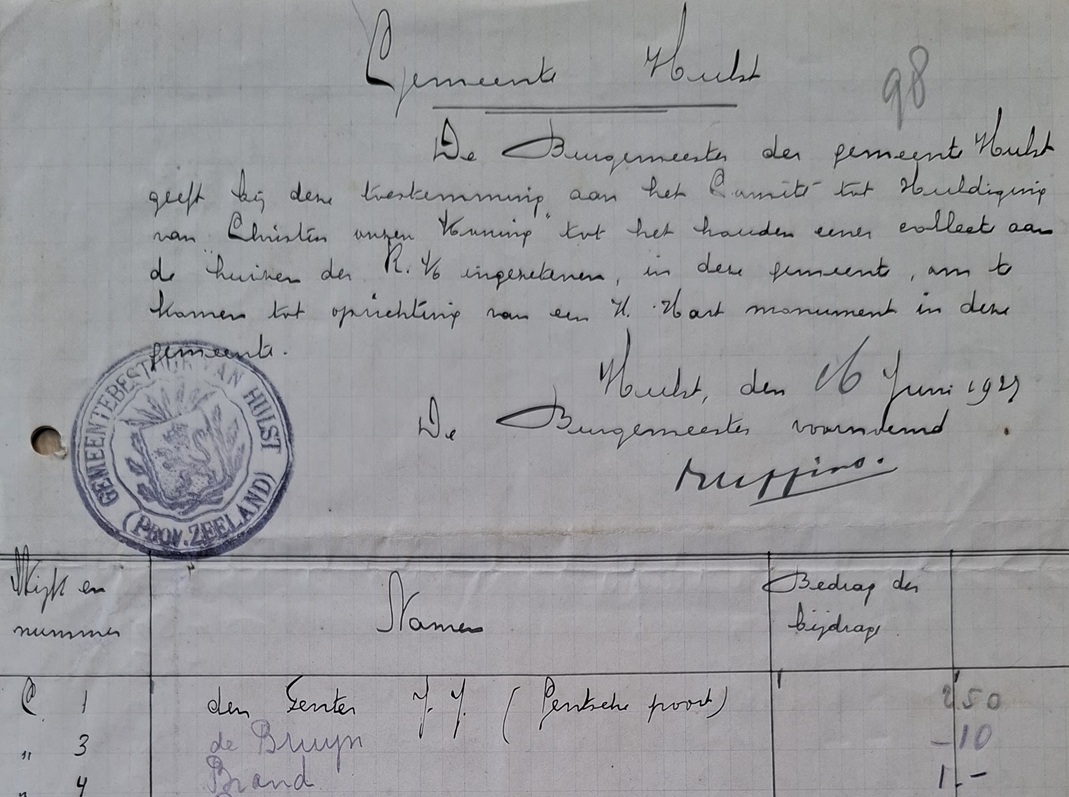 Gemeente Hulst
98
De Burgemeester der gemeente Hulst
geeft bij deze toestemming aan het Comité tot Huldiging
van "Christus onzen Koning" tot het houden eener collect aan
de huizen der R. K. ingezetenen, in deze gemeente, om te
komen tot oprichting van een H. Hart monument in deze
gemeente.
Hulst, den 16 Juni 1927
De Burgemeester voornoemd
GEMEENTEBESTUUR VAN HULST
(PROV. ZEELAND)
Wijk en nummer
Namen
Bedrag der bijdrage
C. 1 den Tenter J. J. (Gentsche poort) 2 50
" 3 de Bruyn -10
" 4 Brand 1.-